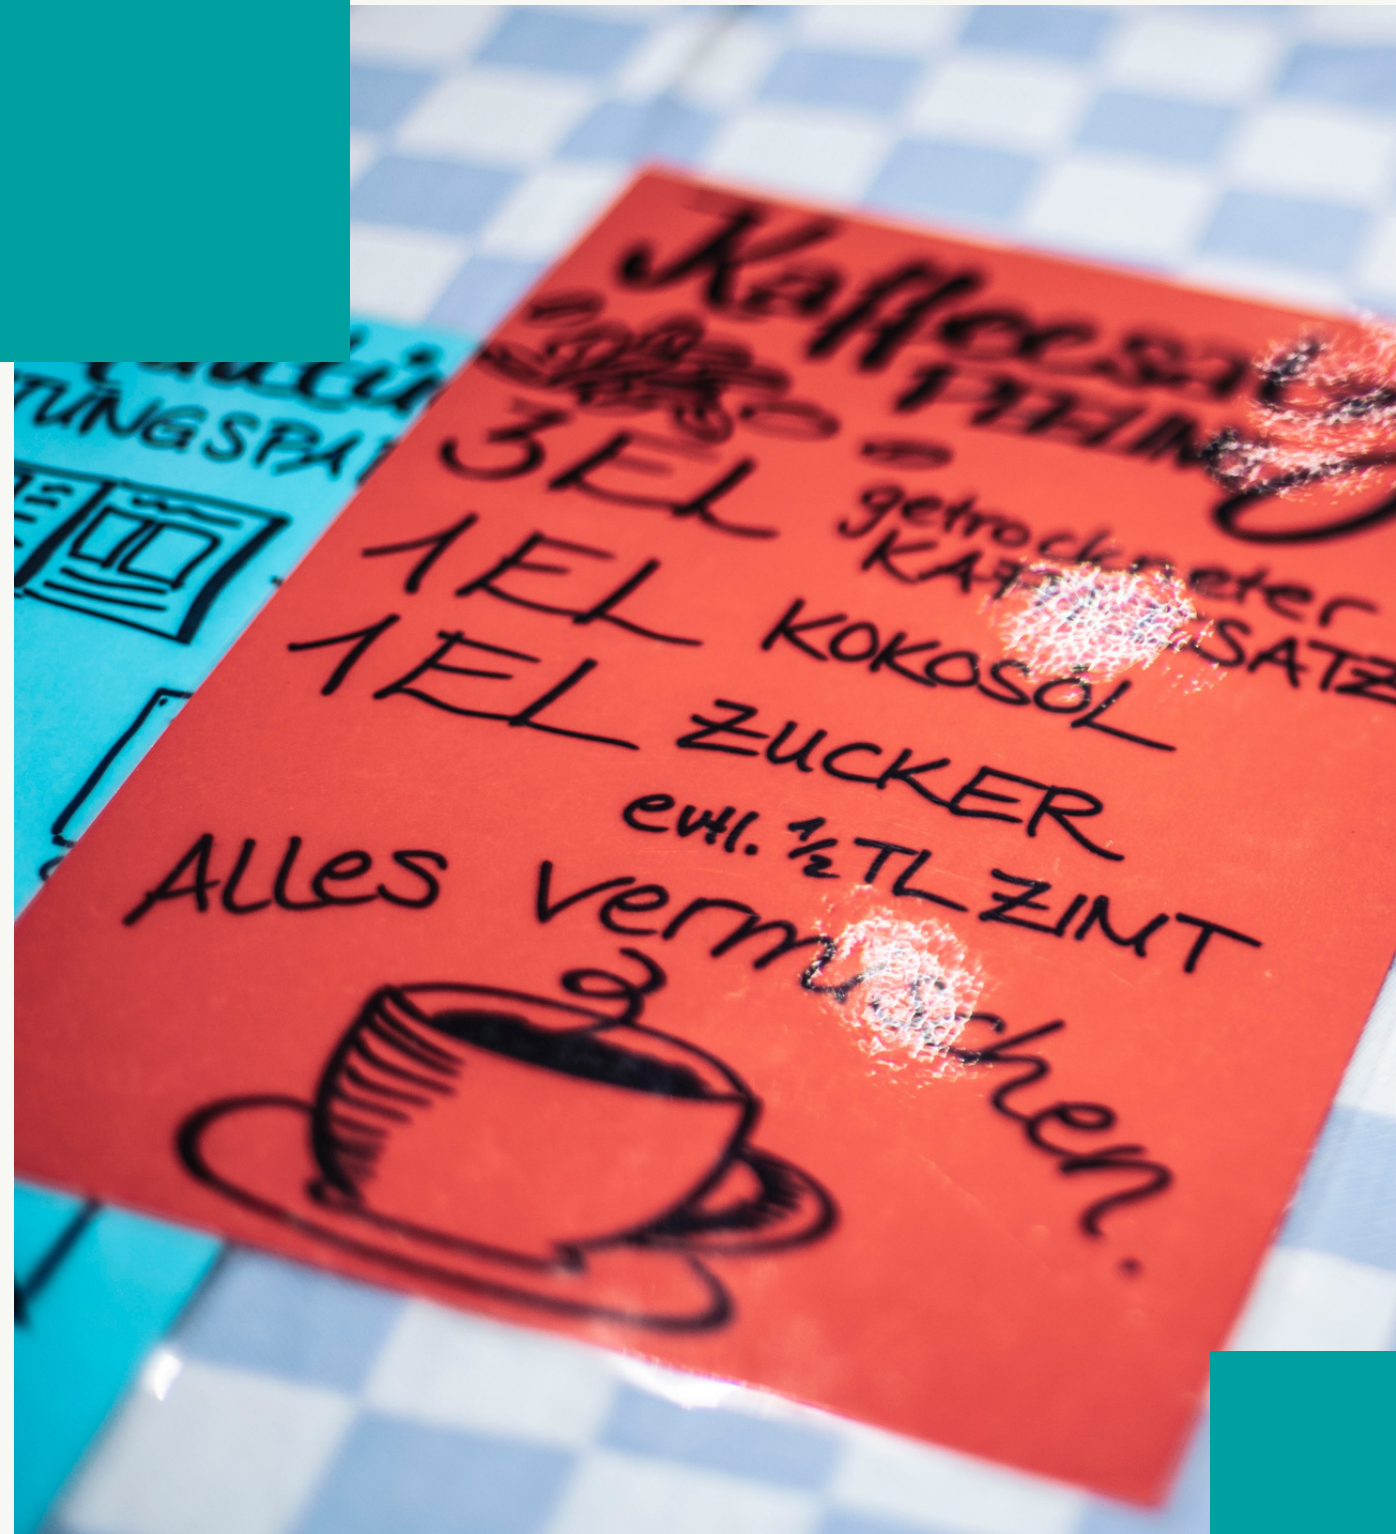 TUNGSPA
PEELING
3 EL getrockneter
KAFFEESATZ
1 EL KOKOSÖL
1 EL ZUCKER
evtl. ½ TL ZIMT
ALLes vermischen.